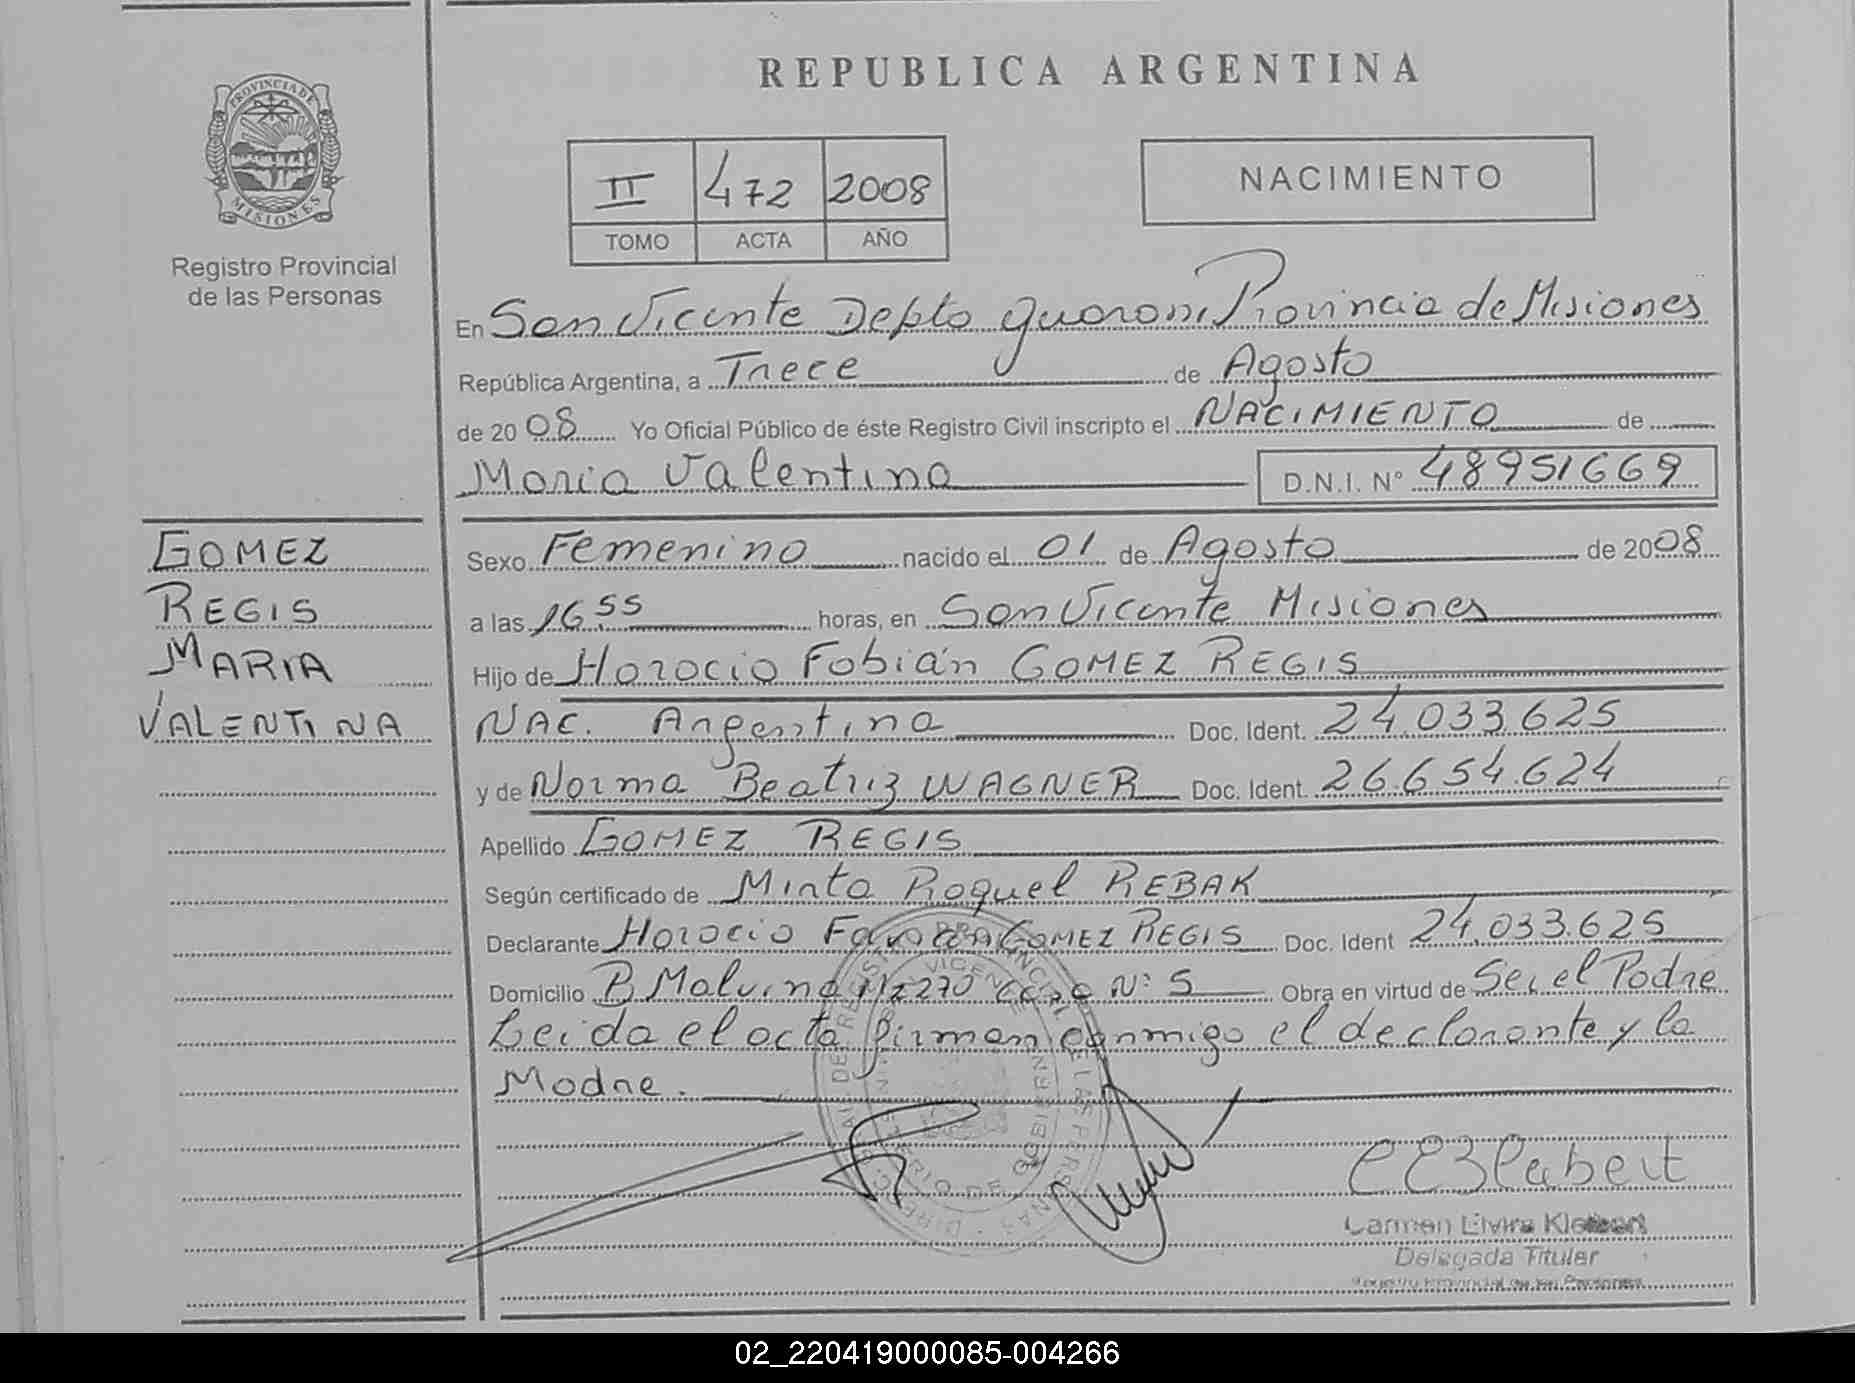 REPUBLICA ARGENTINA
PROVINCIA DE
MISIONES
Registro Provincial
de las Personas
II 472 2008
TOMO ACTA AÑO
NACIMIENTO
En San Vicente Depto Guarani Provincia de Misiones
República Argentina, a Trece de Agosto
de 20 08 Yo Oficial Público de éste Registro Civil inscripto el NACIMIENTO de
Maria Valentina D.N.I. N° 48951669
GOMEZ
REGIS
MARIA
VALENTINA
Sexo Femenino nacido el 01 de Agosto de 2008
a las 16,55 horas, en San Vicente Misiones
Hijo de Horacio Fabián GOMEZ REGIS
NAC. Argentina Doc. Ident. 24.033.625
y de Norma Beatriz WAGNER Doc. Ident. 26.654.624
Apellido GOMEZ REGIS
Según certificado de Mirta Raquel REBAK
Declarante Horacio GOMEZ REGIS Doc. Ident 24.033.625
Domicilio B Malvina Mz 270 Casa N: 5 Obra en virtud de Ser el Padre
Leida el acta firman conmigo el declarante y la
Madre.
Carmen Elvira
Delegada Titular
Registro Provincial de las Personas
02_220419000085-004266